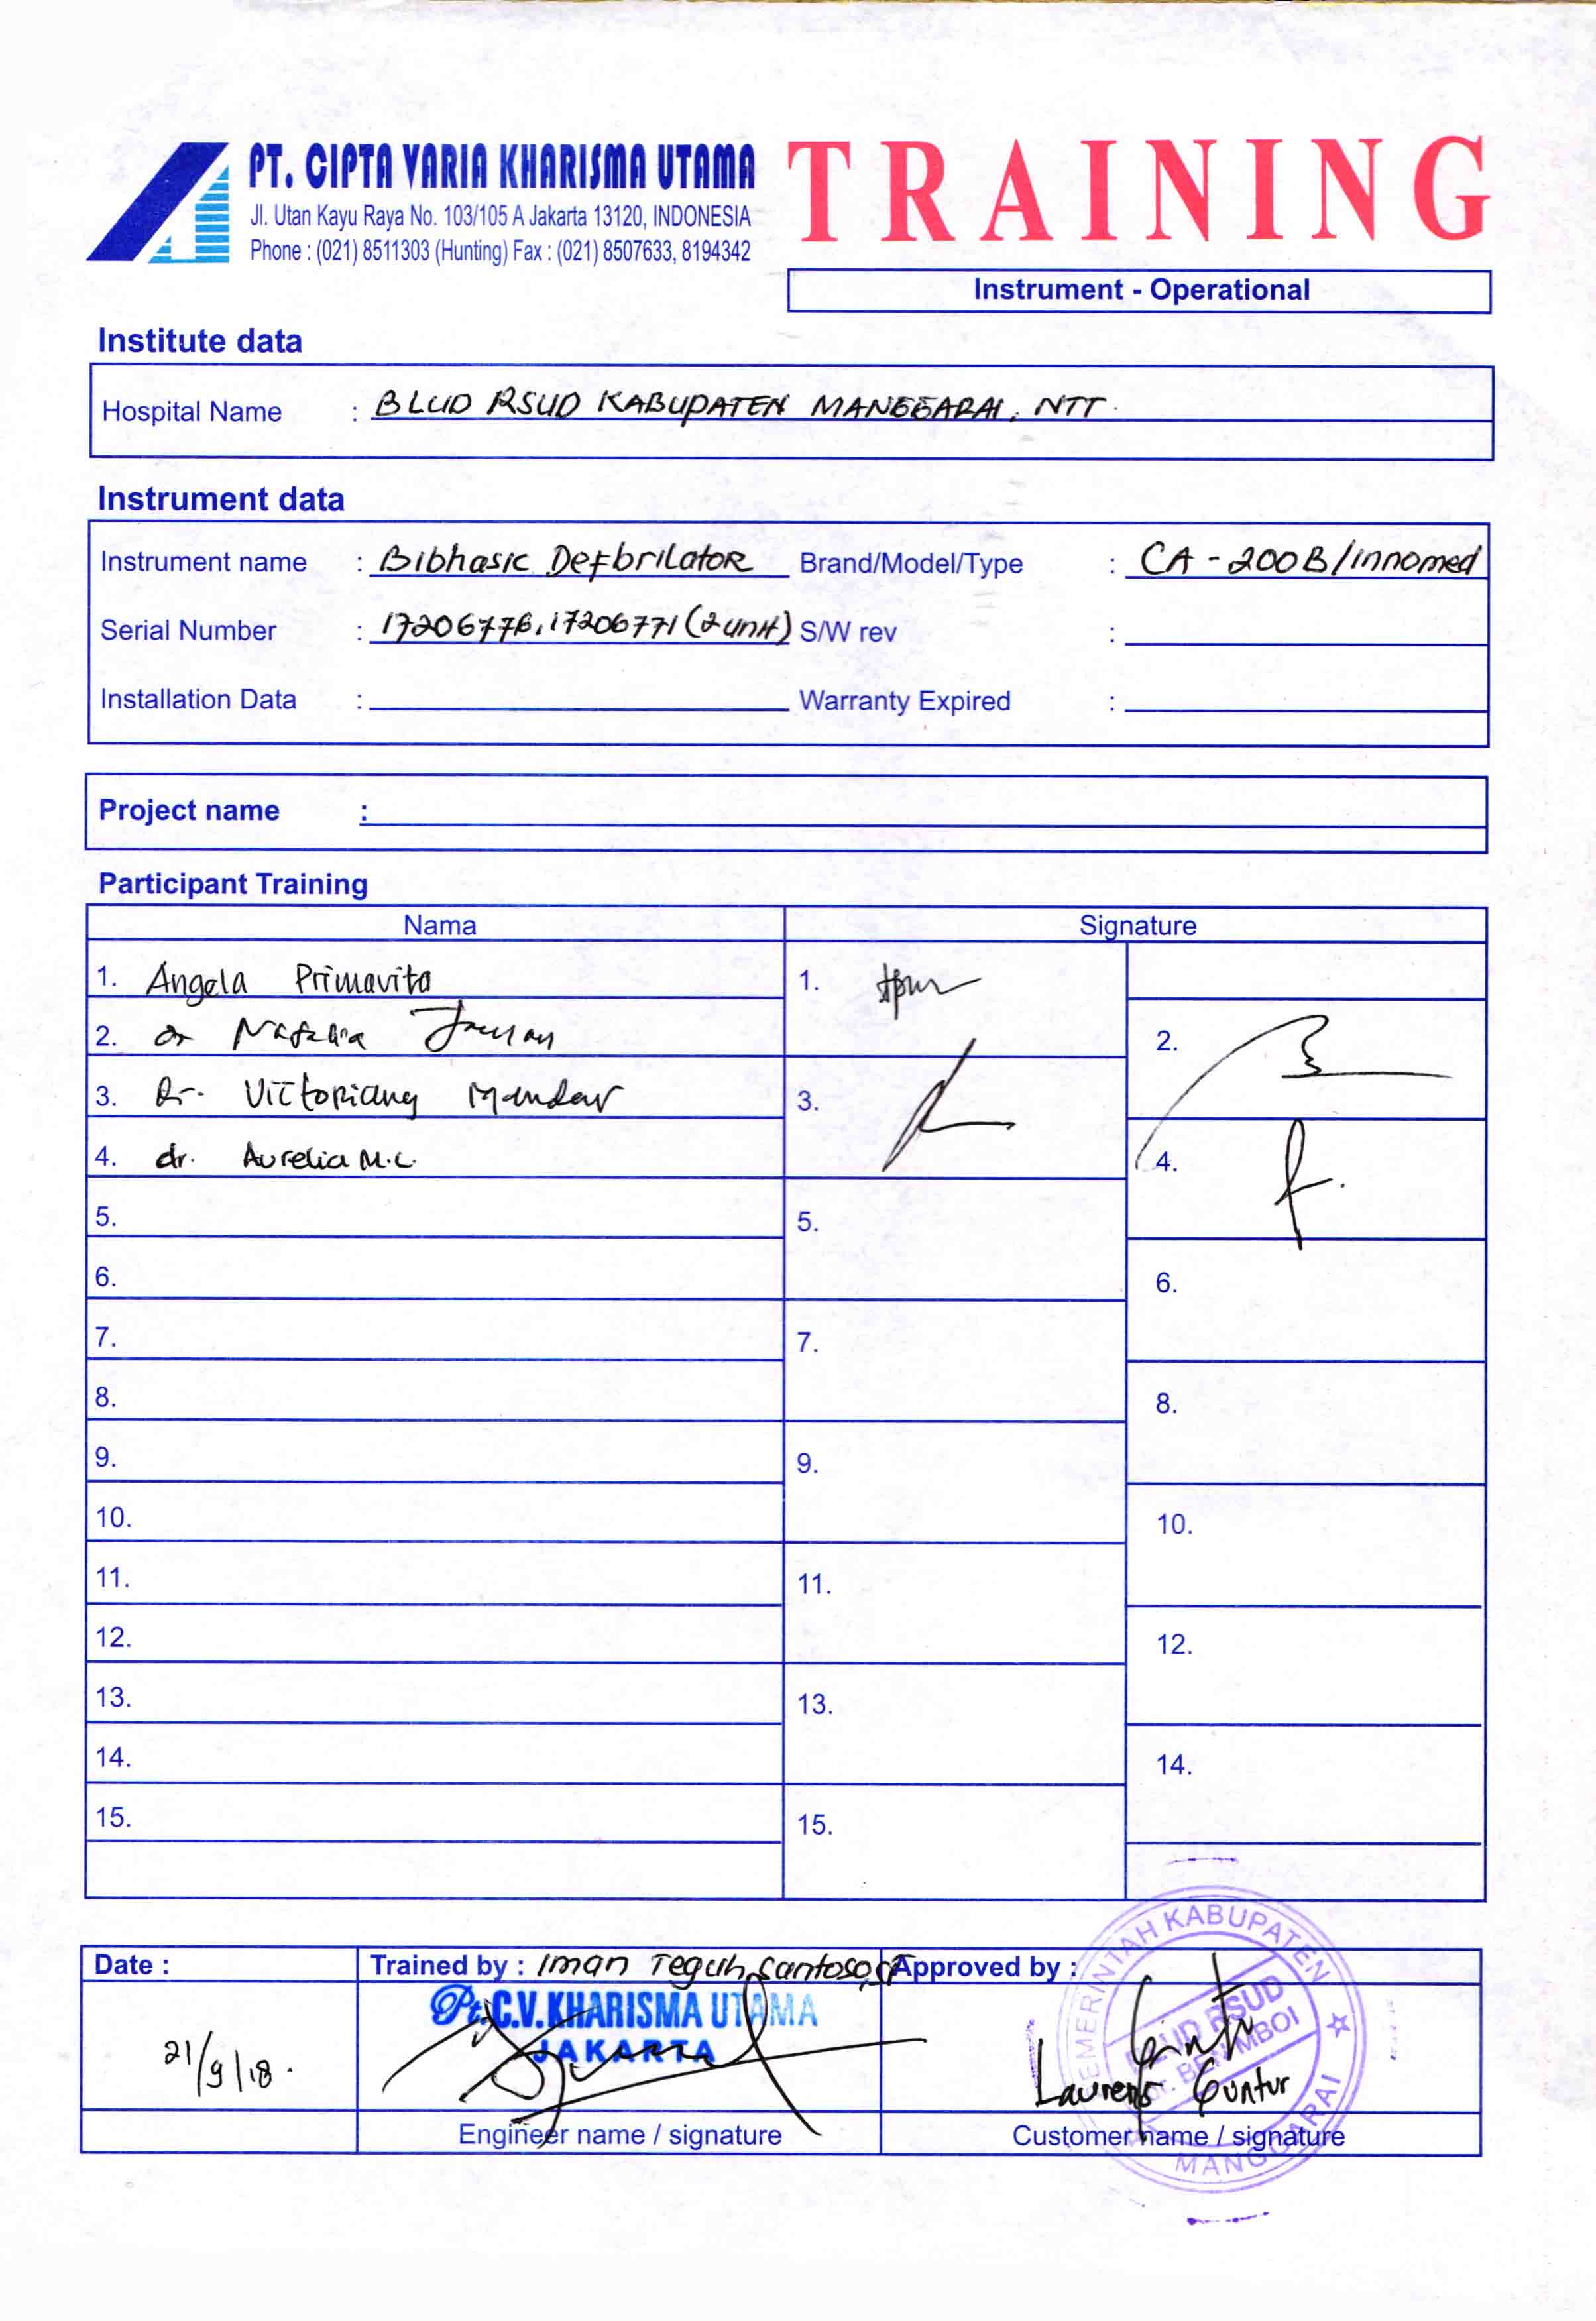 PT. CIPTA VARIA KHARISMA UTAMA
Jl. Utan Kayu Raya No. 103/105 A Jakarta 13120, INDONESIA
Phone : (021) 8511303 (Hunting) Fax : (021) 8507633, 8194342
TRAINING
Instrument - Operational
Institute data
Hospital Name : BLUD RSUD KABUPATEN MANGGARAI, NTT.
Instrument data
Instrument name : Bibhasic Defbrilator Brand/Model/Type : CA - 200B/innomed
Serial Number : 17206776, 17206771 (2 unit) S/W rev :
Installation Data : Warranty Expired :
Project name :
Participant Training
Nama Signature
1. Angela Primavita 1.
2. dr Natalia 2.
3. Dr. Victoriany Mandar 3.
4. dr. Aurelia M.C. 4.
5. 5.
6. 6.
7. 7.
8. 8.
9. 9.
10. 10.
11. 11.
12. 12.
13. 13.
14. 14.
15. 15.
Date : Trained by : Iman Teguh Santoso Approved by :
Pt. C.V. KHARISMA UTAMA
JAKARTA
21/9/18.
Laurens Guntur
PEMERINTAH KABUPATEN
BLUD RSUD
dr. BEN MBOI
MANGGARAI
Engineer name / signature Customer name / signature